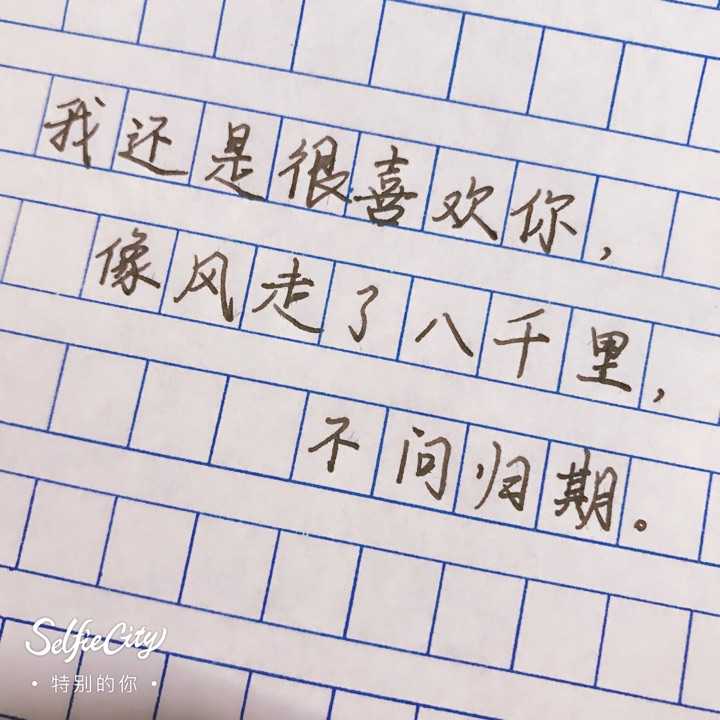 我还是很喜欢你，
像风走了八千里，
不问归期。
SelfieCity
• 特别的你 •